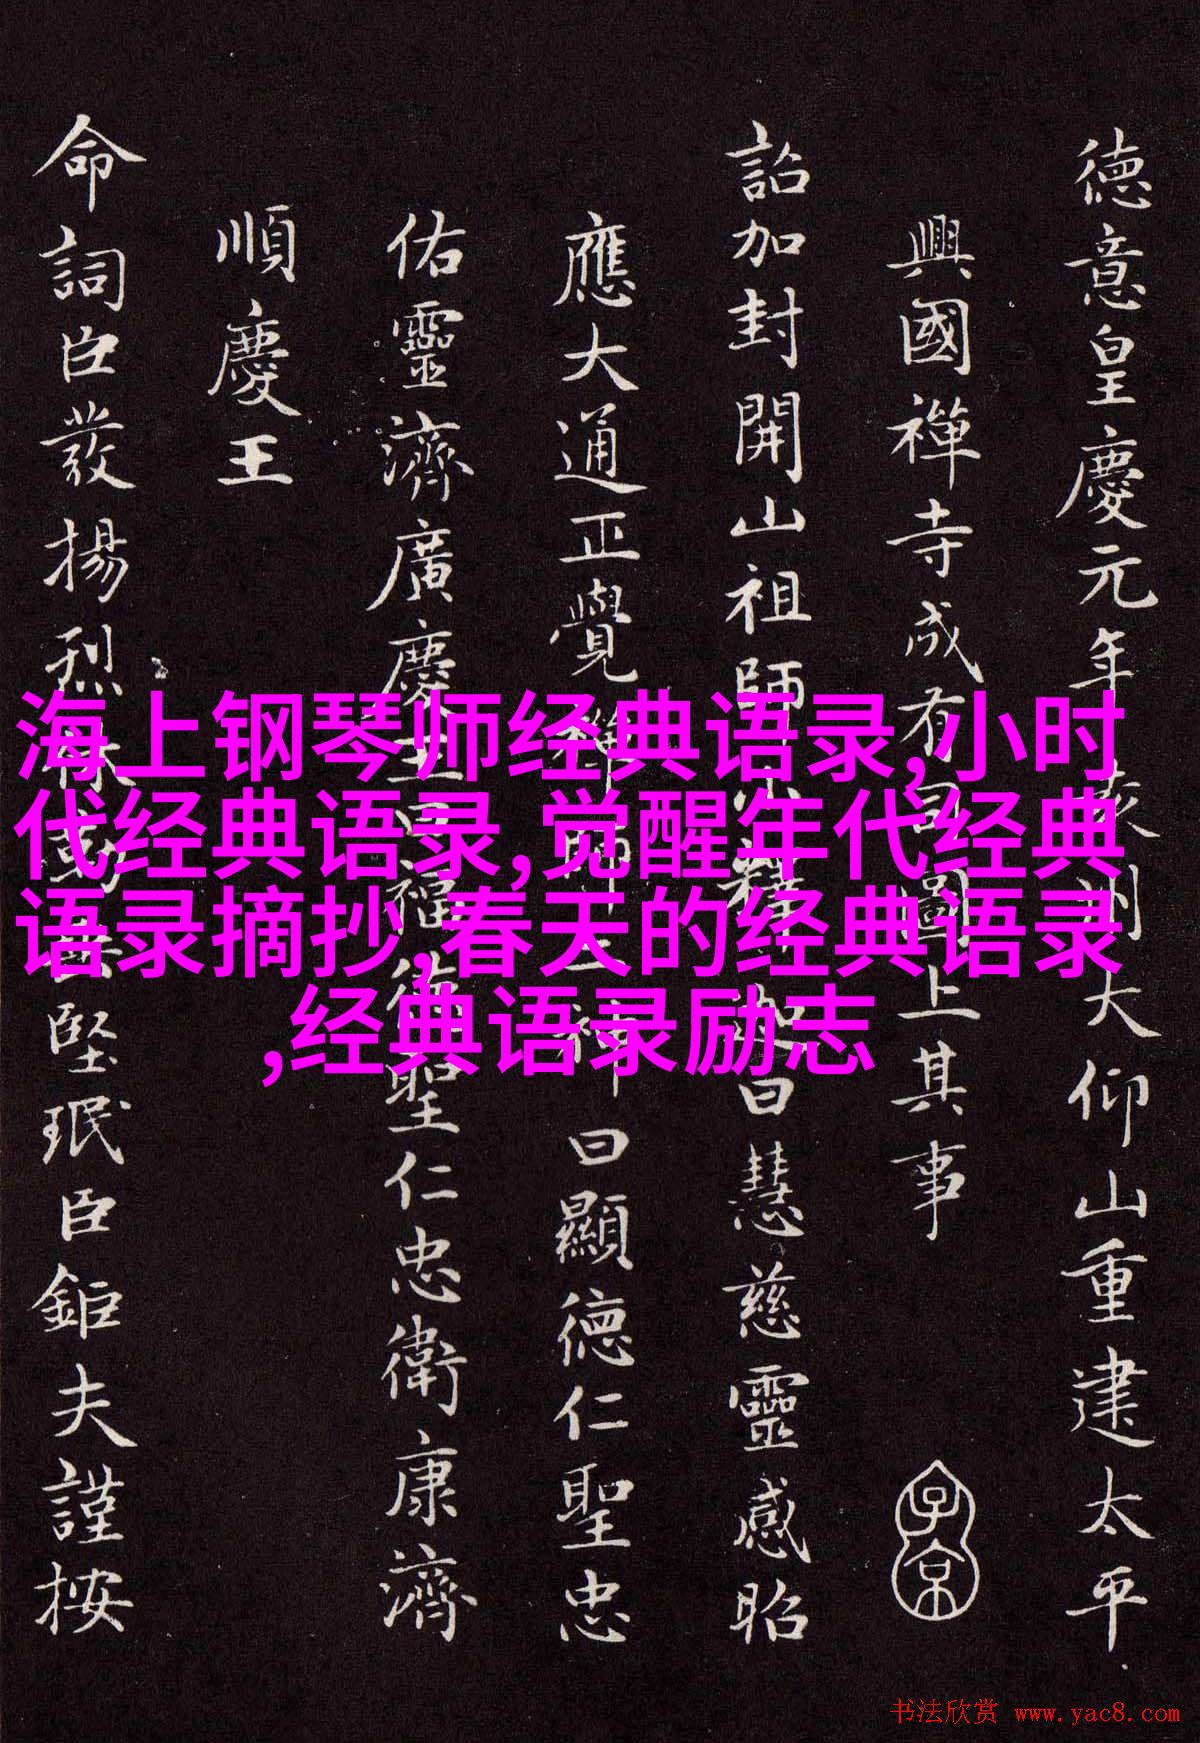 德意皇慶元年袁州大仰山重建太平
興國禪寺成有圖上其事
子京
詔加封開山祖師小釋迦曰慧慈靈感昭
應大通正覺禪師二神曰顯德仁聖忠
佑靈濟廣慶王曰福德聖仁忠衛康濟
順慶王
命詞臣發揚烈堅珉臣鉅夫謹按
海上钢琴师经典语录,小时
代经典语录,觉醒年代经典
语录摘抄,春天的经典语录
,经典语录励志
书法欣赏 www.yac8.com